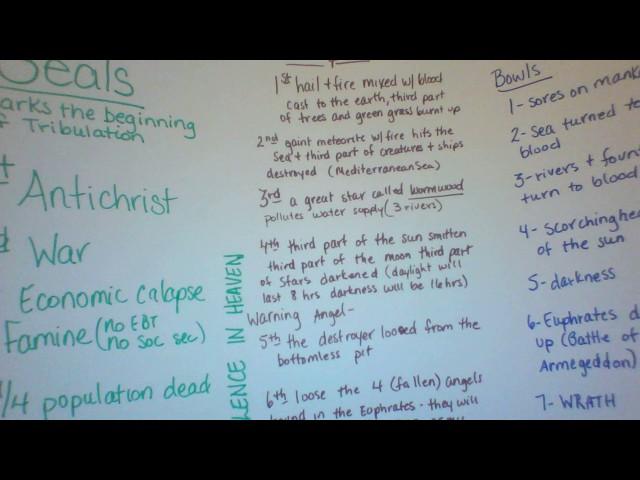 Seals
arks the beginning
Tribulation
Antichrist
War
Economic calapse
Famine (no EBT
no soc sec)
1/4 population dead
LENCE IN HEAVEN
1st hail + fire mixed w/ blood
cast to the earth, third part
of trees and green grass burnt up
2nd gaint meteorite w/ fire hits the
Sea + third part of creatures + ships
destroyed (Mediterranean Sea)
3rd a great star called wormwood
pollutes water supply (3 rivers)
4th third part of the sun smitten
third part of the moon third part
of stars darkened (daylight will
last 8 hrs darkness will be 16 hrs)
Warning Angel-
5th the destroyer loosed from the
bottomless pit
6th loose the 4 (fallen) angels
bound in the Euphrates - they will
Bowls
1- sores on mank
2- sea turned to
blood
3- rivers + foun
turn to blood
4- scorching hea
of the sun
5- darkness
6- Euphrates d
up (Battle of
Armegeddon)
7- WRATH